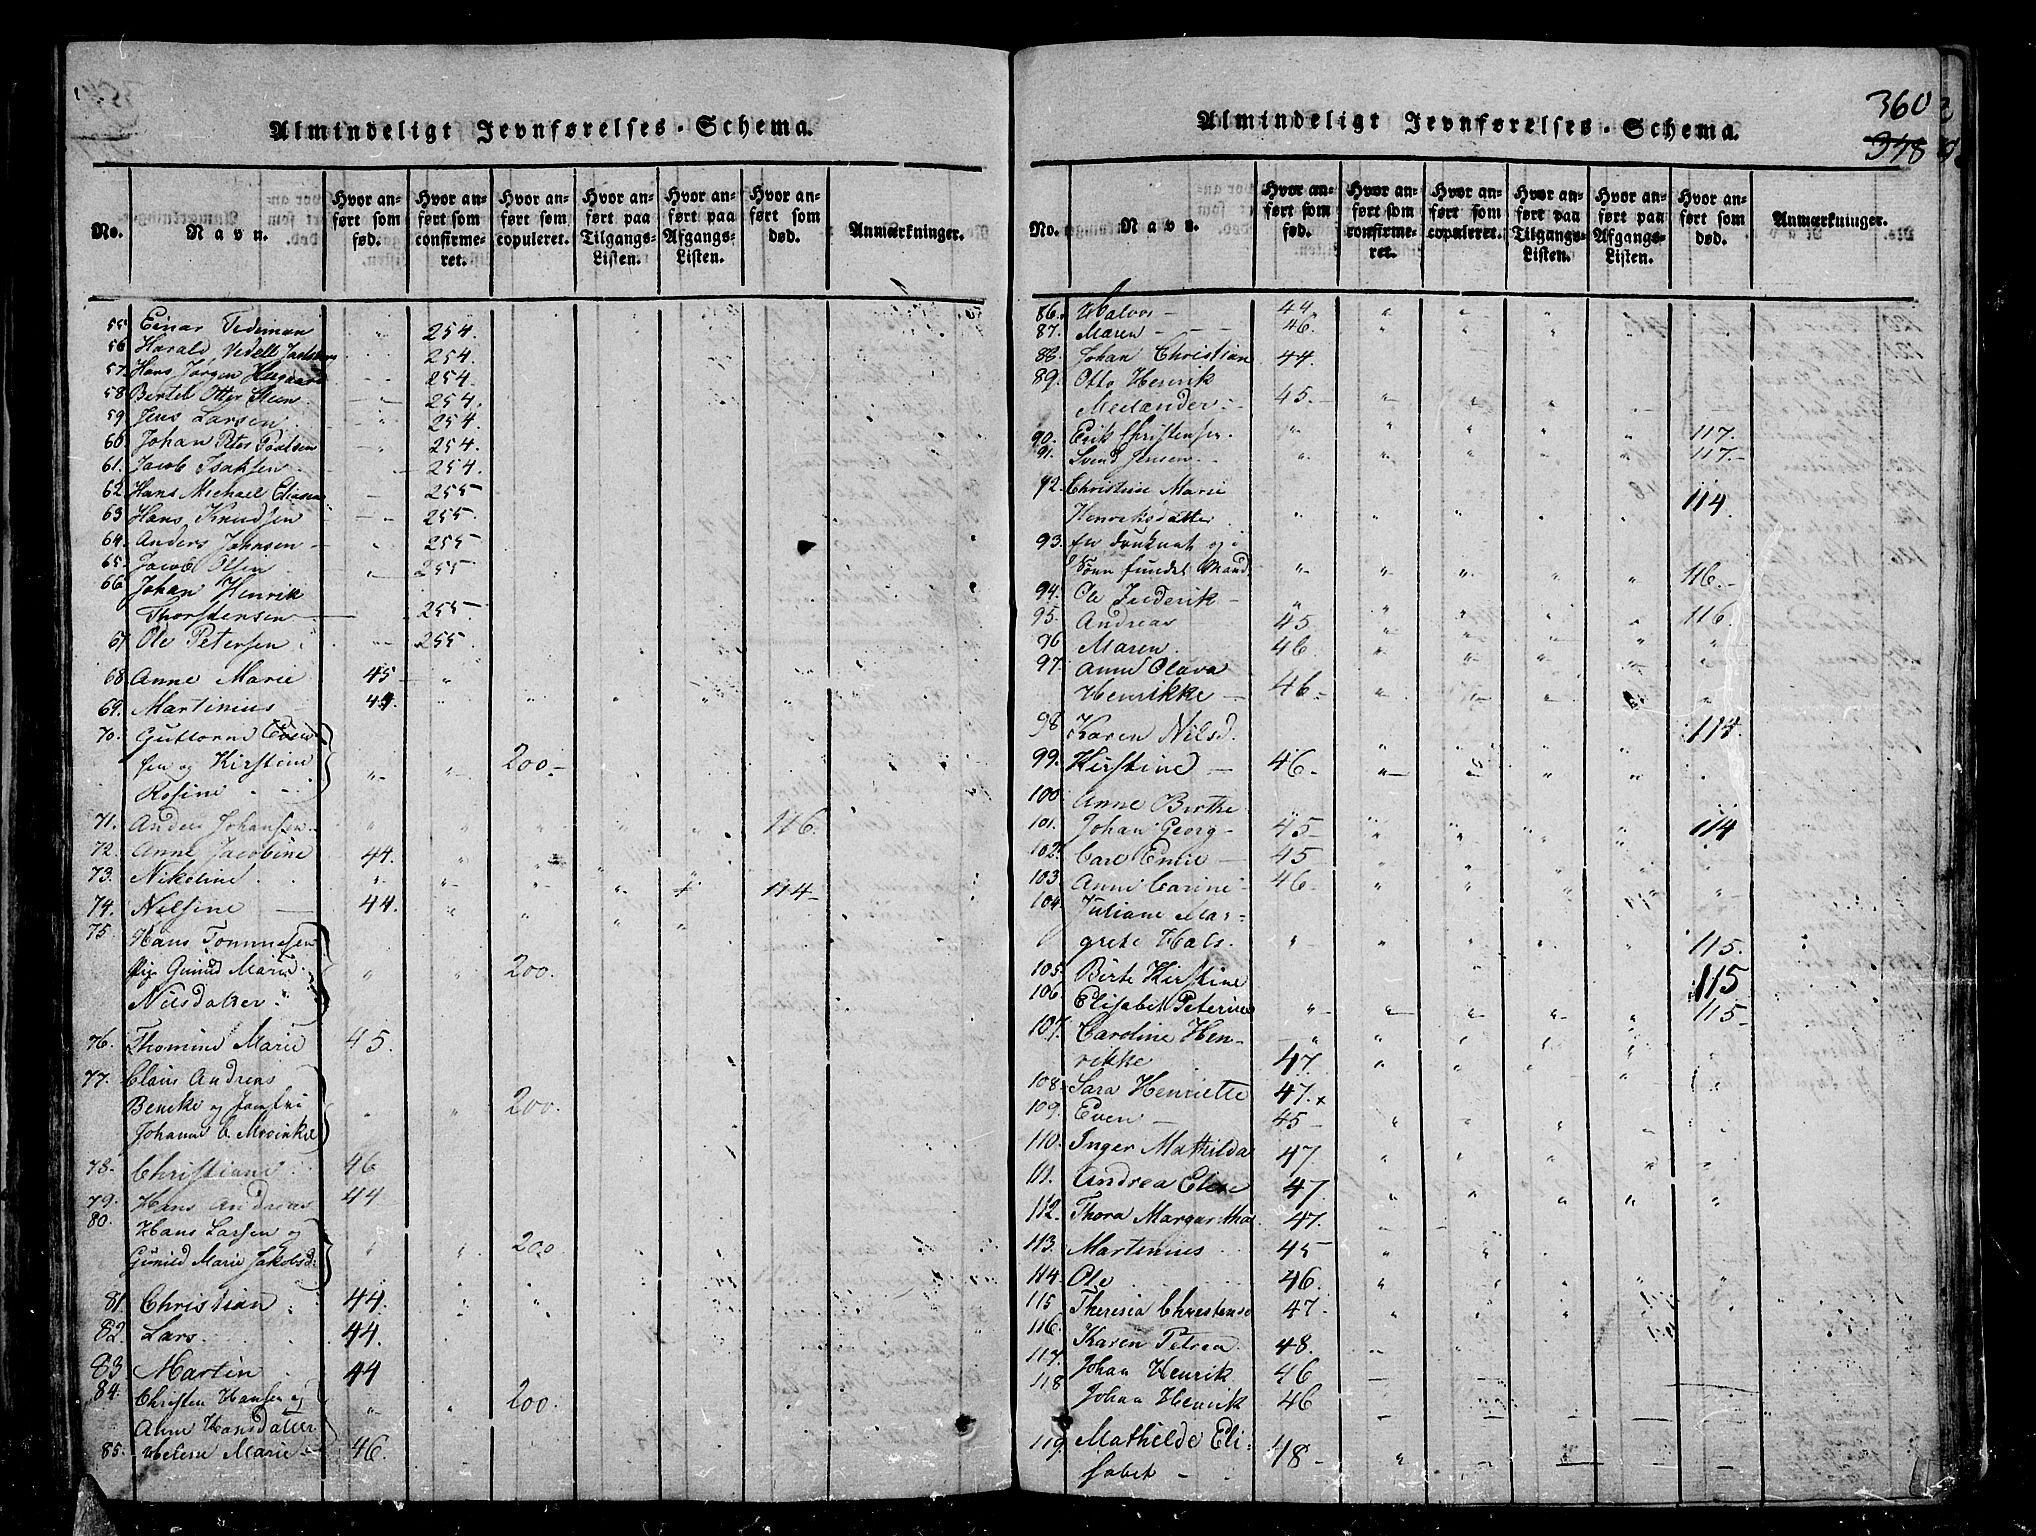 Almindeligt Jevnførelses-Schema.
No. Navn. Hvor anført som fød. Hvor anført som confirmeret. Hvor anført som copuleret. Hvor anført paa Tilgangs-Listen. Hvor anført paa Afgangs-Listen. Hvor anført som død. Anmærkninger.
55 Einar Tideman 254.
56 Harald Vedell 254.
57. Hans Jørgen 254.
58. Bertel Otter Steen 254.
59 Jens Larsen 254.
60 Johan Peter Paulsen 254.
61. Jacob Isaksen 254.
62. Hans Michael Eliasen 255
63 Hans Knudsen 255.
64. Anders Johnsen 255
65. Jacob Olsen 255
66. Johan Henrik
Thorstensen 255
67 Ole Petersen 255
68. Anne Marie 45
69. Martinus 44.
70. Guttorm Even
sen og Kirstine 200.
Rosine
71. Anders Johansen 116.
72. Anne Jacobine 44.
73. Nikoline 114
74. Nilsine 44.
75. Hans Tommesen
Pige Gunild Marie 200.
Nilsdatter
76. Thomine Marie 45.
77. Claus Andreas
Bencke og Jomfru 200.
Johanne C.
78. Christiane 46
79. Hans Andreas 44
80. Hans Larsen og
Gunild Marie Jakobsd. 200
81. Christian 44.
82 Lars 44.
83 Martin 44
84. Christen Hansen og 200.
Anne Hansdatter
85. Helene Marie 46.
Almindeligt Jevnførelses-Schema.
360
378
No. Navn. Hvor anført som fød. Hvor anført som confirmeret. Hvor anført som copuleret. Hvor anført paa Tilgangs-Listen. Hvor anført paa Afgangs-Listen. Hvor anført som død. Anmærkninger.
86. Halvor 44
87. Maren 46.
88. Johan Christian 44
89. Otto Henrik
Meelander 45.
90. Erik Christensen. 117.
91. Svend Jensen 117.
92. Christine Marie
Henriksdatter 114.
93. En druknet og i
Søen fundet Mand 116.
94. Ole Frederik 116.
95. Andreas 45
96 Maren 46.
97. Anne Olava
Henrikke 46
98 Karen Nilsd. 114.
99. Kirstine 46
100. Anne Birthe 114
101. Johan Georg 45
102. Carl Emil 45
103 Anne Carine 46
104. Juliane Mar-
grete Hals. 115.
105. Birte Kirstine 115
106. Elisabet Peterine 115
107. Caroline Hen-
rikke 47.
108. Sara Henriette 47.
109. Even 45
110. Inger Mathilda 47
111. Andrea Eline 47
112. Thora Margaretha 47.
113. Martinius 45
114. Ole 46.
115 Theresia Christense 47
116. Karen Petrea 48.
117. Johan Henrik 46
118 Johan Henrik 46
119. Mathilde Eli-
sabet 48